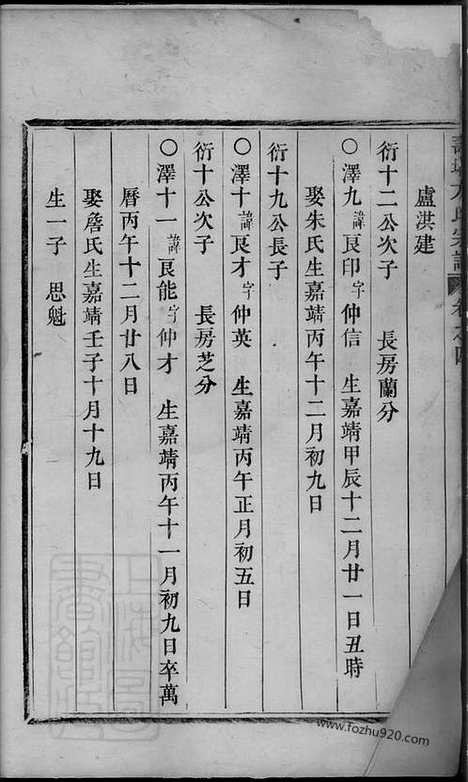 盧洪建
衍十二公次子　長房蘭分
〇澤九諱良印字仲信　生嘉靖甲辰十二月廿一日丑時
娶朱氏生嘉靖丙午十二月初九日
衍十九公長子
〇澤十諱良才字仲英　生嘉靖丙午正月初五日
衍十公次子　長房芝分
〇澤十一諱良能字仲才　生嘉靖丙午十一月初九日卒萬
曆丙午十二月廿八日
娶詹氏生嘉靖壬子十月十九日
生一子　思魁
www.fozhu920.com